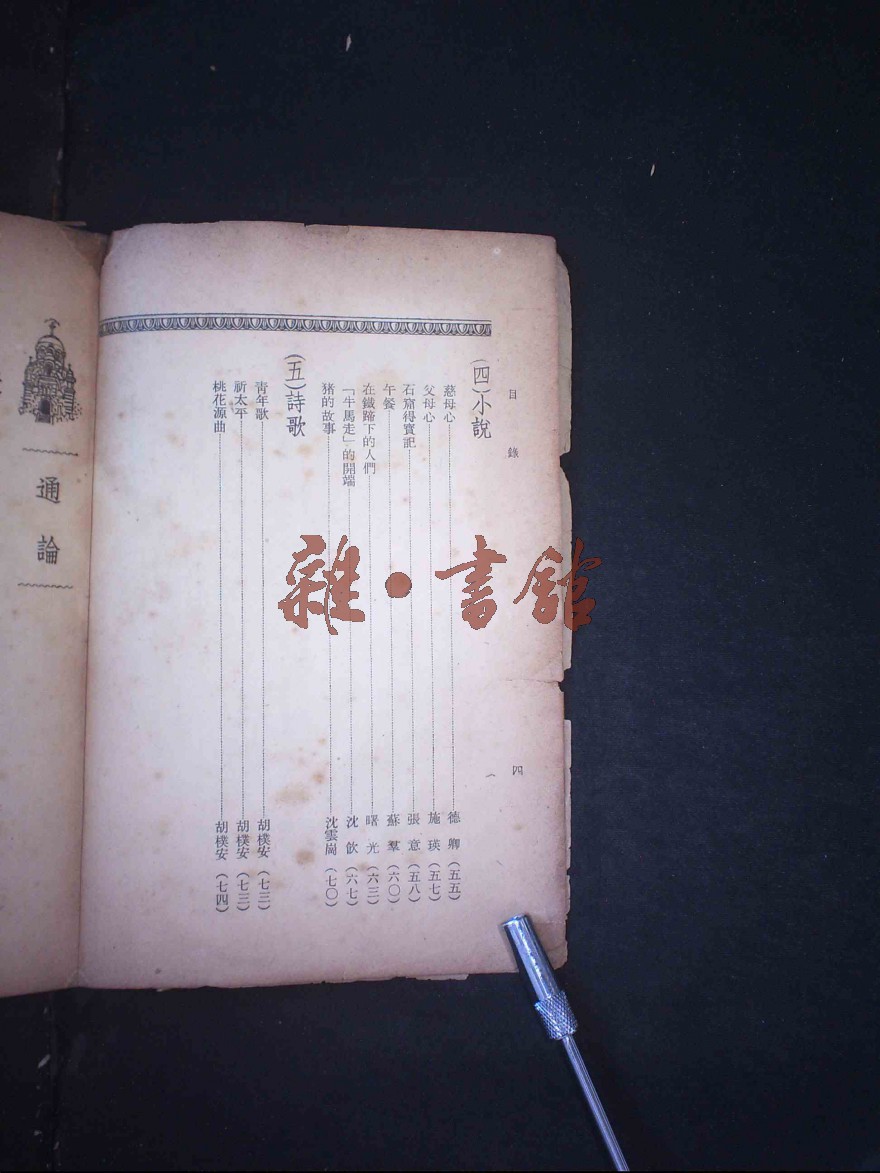 目錄
四
(四)小說
慈母心 德卿(五五)
父母心 施瑛(五七)
石窟得寶記 張意(五八)
午餐 蘇羣(六〇)
在鐵蹄下的人們 曙光(六三)
「牛馬走」的開端 沈飲(六七)
豬的故事 沈雲崗(七〇)
(五)詩歌
青年歌 胡樸安(七三)
祈太平 胡樸安(七三)
桃花源曲 胡樸安(七四)
通論
雜•書館